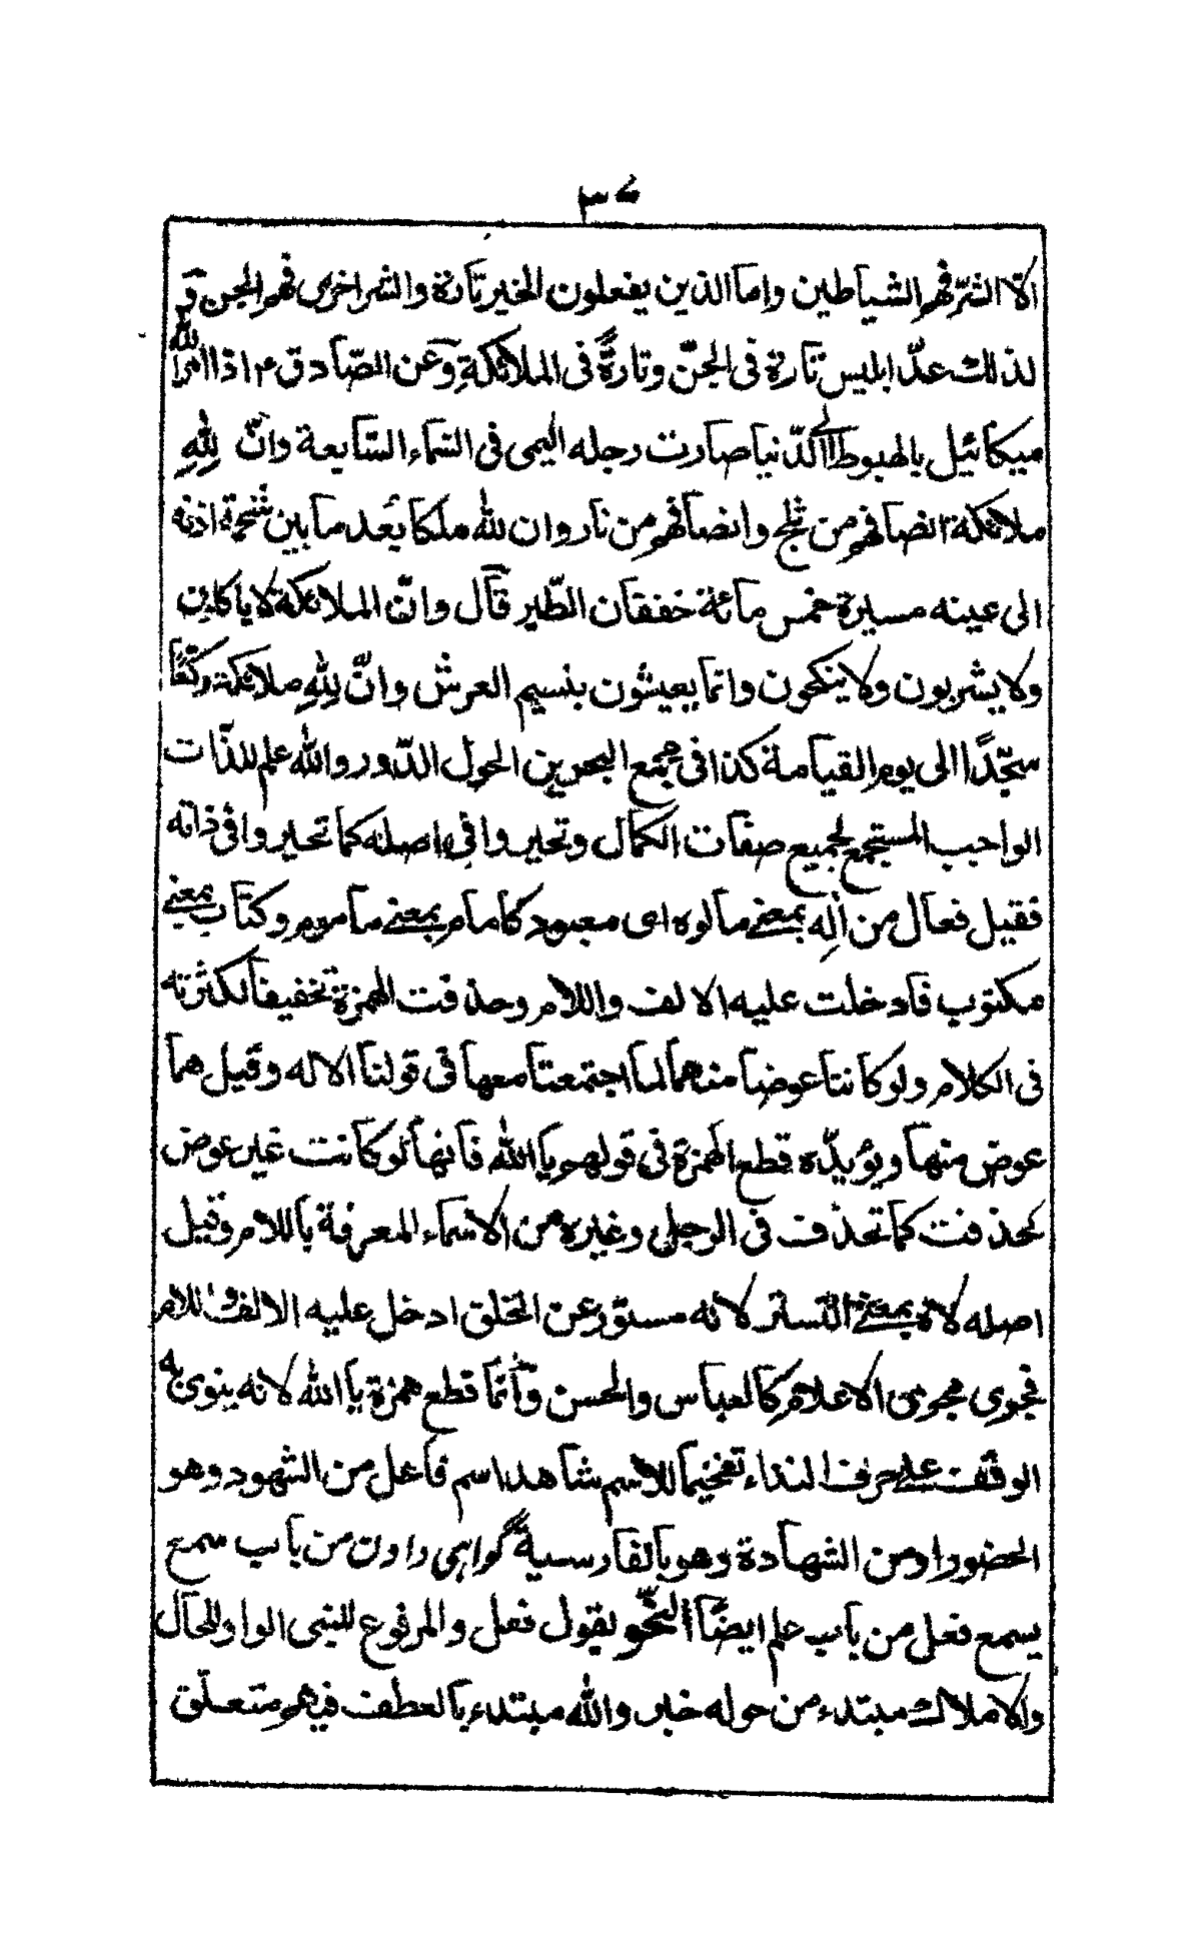 ٣٧
الا الشرّ فهم الشياطين واما الذين يفعلون الخير تارة والشر اخرى فهم الجن و
لذلك عدّ ابليس تارة فى الجنّ وتارةً فى الملائكةِ وعن الصّادق ٤ اذا امر الله
ميكائيل بالهبوط الى الدّنيا صارت رجله اليمى فى السّماء السّابعة وانّ لِلّهِ
ملائكة انصافهم من ثلج وانصافهم من نار وان لله ملكا بُعد ما بين شحمة اذنه
الى عينه مسيرة خمس مائة خفقان الطّير قال وانّ الملائكة لا ياكلون
ولا يشربون ولا ينكحون وانما يعيشون بنسيم العرش وانّ لِلّهِ ملائكة ركّعًا
سجّدًا الى يوم القيامة كذا فى مجمع البحرين الحول الدّور والله علم للذّات
الواجب المستجمع لجميع صفات الكمال وتحيروا فى اصله كما تحيروا فى ذاته
فقيل فعال من اَلِه بمعنى مالوه اى معبود كامام بمعنى ماموم وكتاب بمعنى
مكتوب فادخلت عليه الالف واللام وحذفت الهمزة تخفيفا لكثرته
فى الكلام ولو كانتا عوضا منهما لما اجتمعتا معها فى قولنا الاله وقيل هما
عوض منها ويؤيدّه قطع الهمزة فى قولهم يا الله فانها لو كانت غير عوض
لحذفت كما تحذف فى الرجل وغيره من الاسماء المعرفة باللام وقيل
اصله لاهٌ بمعنى التستر لانه مستور عن الخلق ادخل عليه الالف واللام
فجرى مجرى الاعلام كالعباس والحسن وانما قطع همزة يا الله لانه ينوى به
الوقف على حرف النداء تفخيما للاسم شاهد اسم فاعل من الشهود وهو
الحضور او من الشهادة وهو بالفارسيةّ گواہى دادن من باب سمع
يسمع فعل من باب علم ايضًا النّحو يقول فعل والمرفوع للنبى الواو للحال
والاملاك مبتدء من حوله خبر والله مبتدء بالعطف فيهم متعلّق